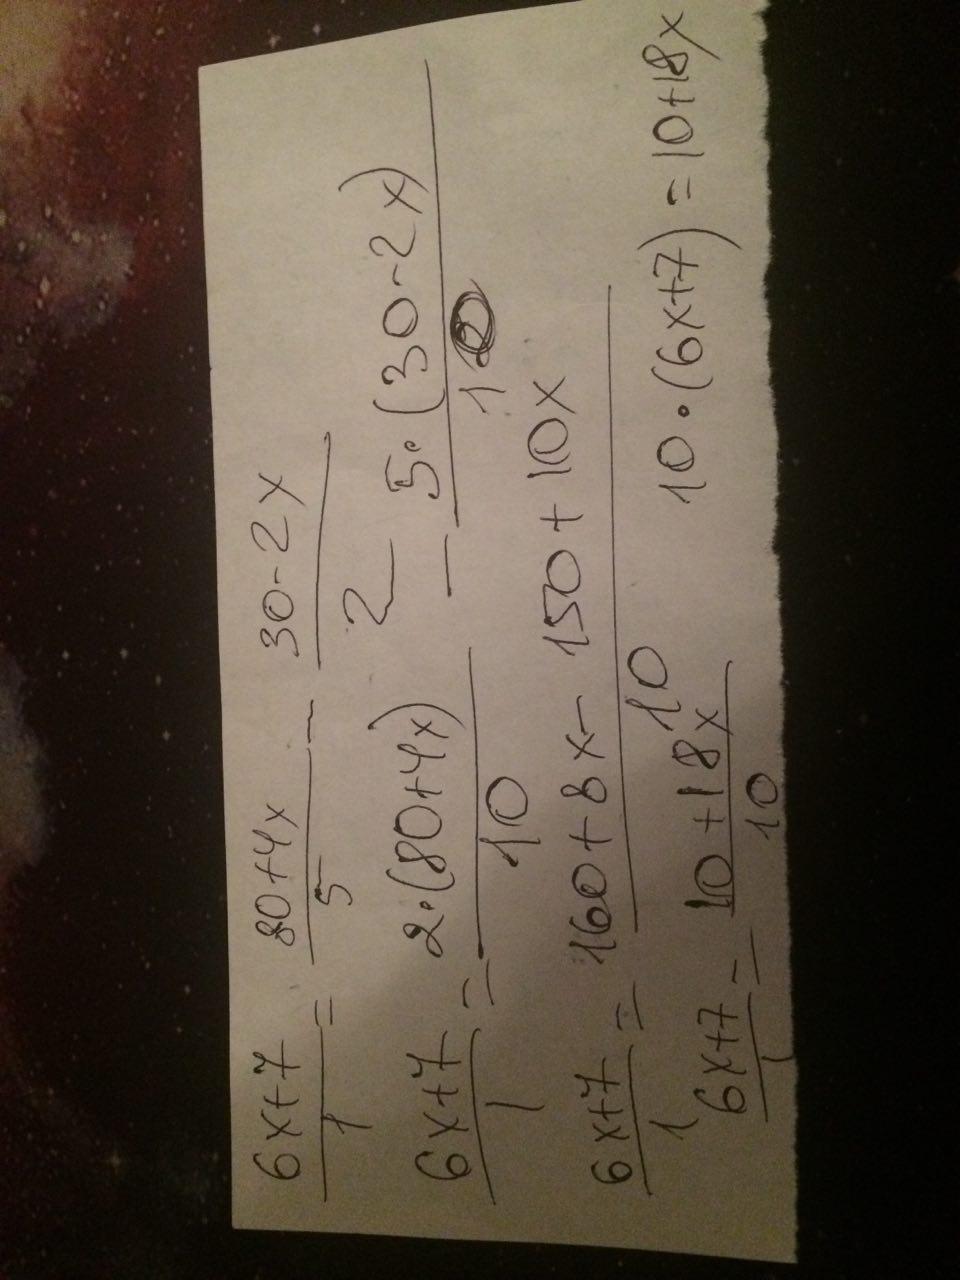 6x+7/1 = 80+4x/5 - 30-2x/2
6x+7/1 = 2·(80+4x)/10 - 5·(30-2x)/10
6x+7/1 = 160+8x-150+10x/10
6x+7/1 = 10+18x/10
10·(6x+7)=10+18x